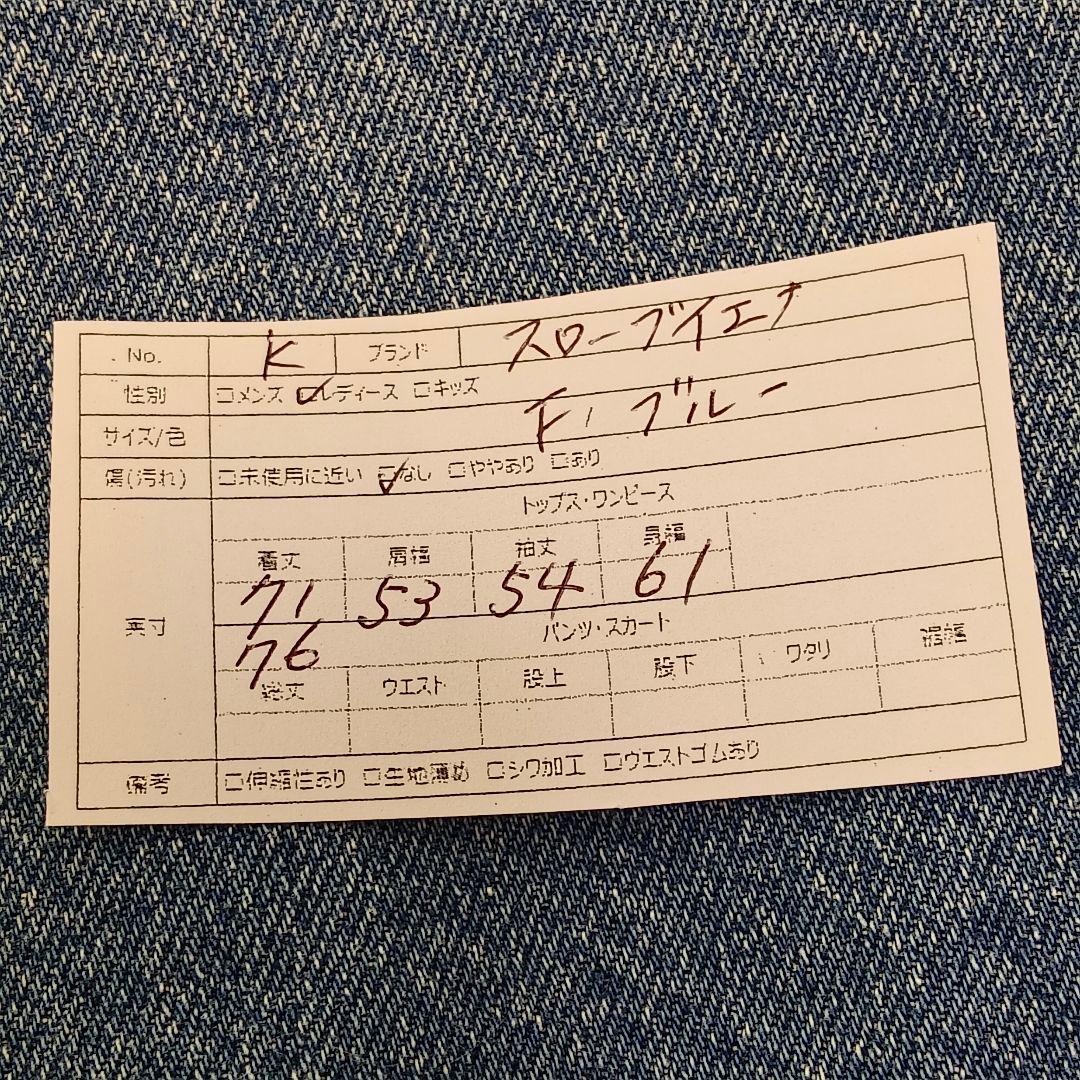 No. K ブランド スローブイエナ
性別 □メンズ ☑レディース □キッズ
サイズ/色 F, ブルー
傷(汚れ) □未使用に近い ☑なし □ややあり □あり
トップス・ワンピース
着丈 肩幅 袖丈 身幅
71 53 54 61
実寸
76
パンツ・スカート
総丈 ウエスト 股上 股下 ワタリ 裾幅
備考 □伸縮性あり □生地薄め □シワ加工 □ウエストゴムあり